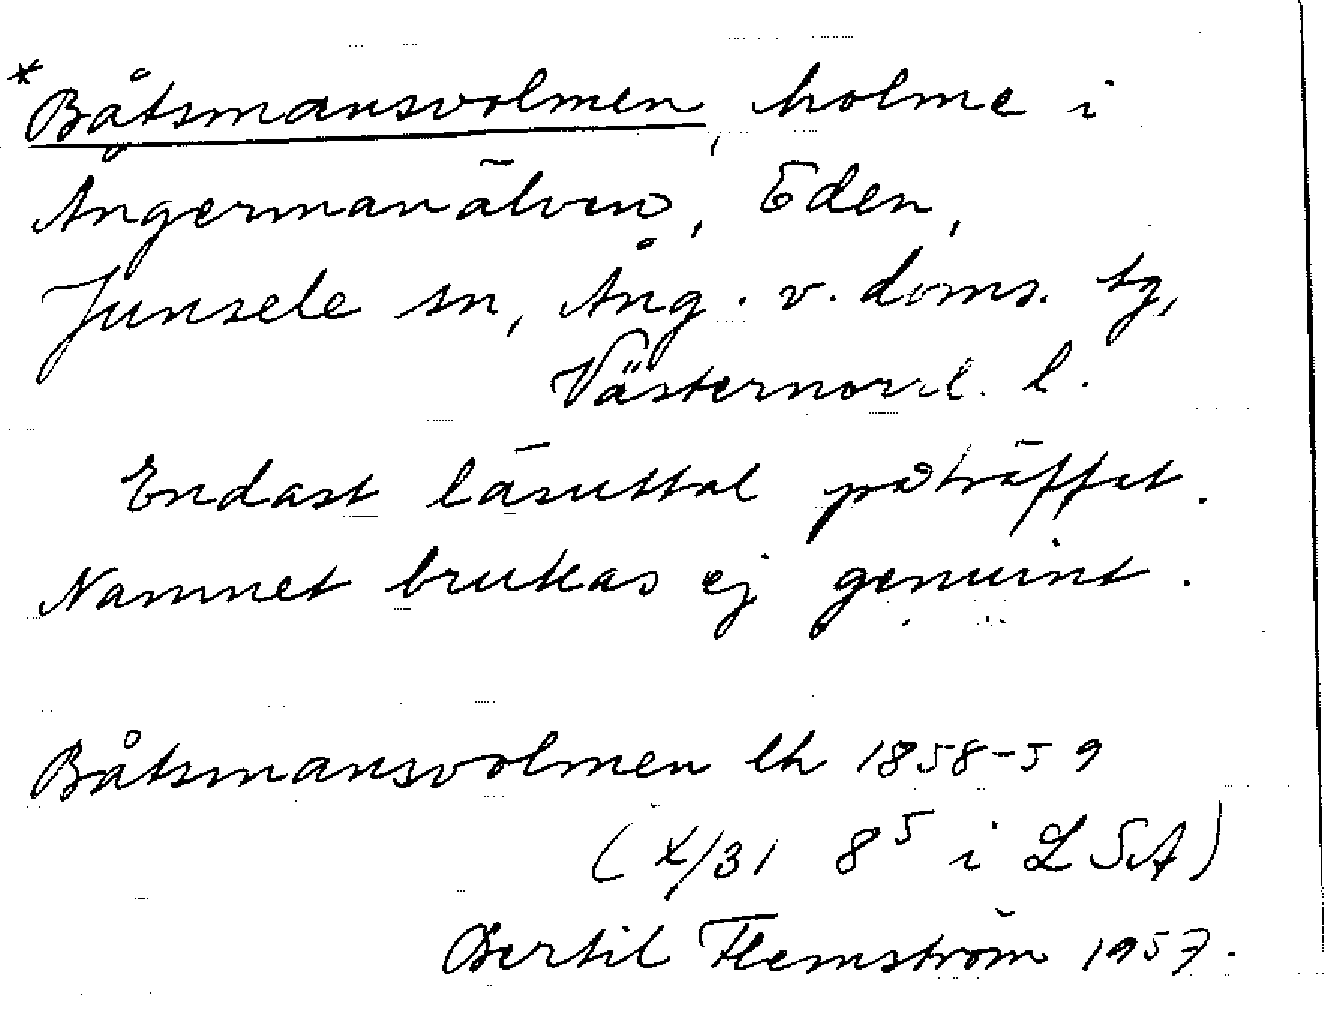 *Båtsmansvolmen, holme i
Ångermanälven, Eden,
Junsele sn, Ång. v. doms. tg,
Västernorrl. l.
Endast läsuttal påträffat.
Namnet brukas ej genuint.
Båtsmansvolmen lh 1858-59
(X/31 8⁵ i LSA)
Bertil Flemström 1957.